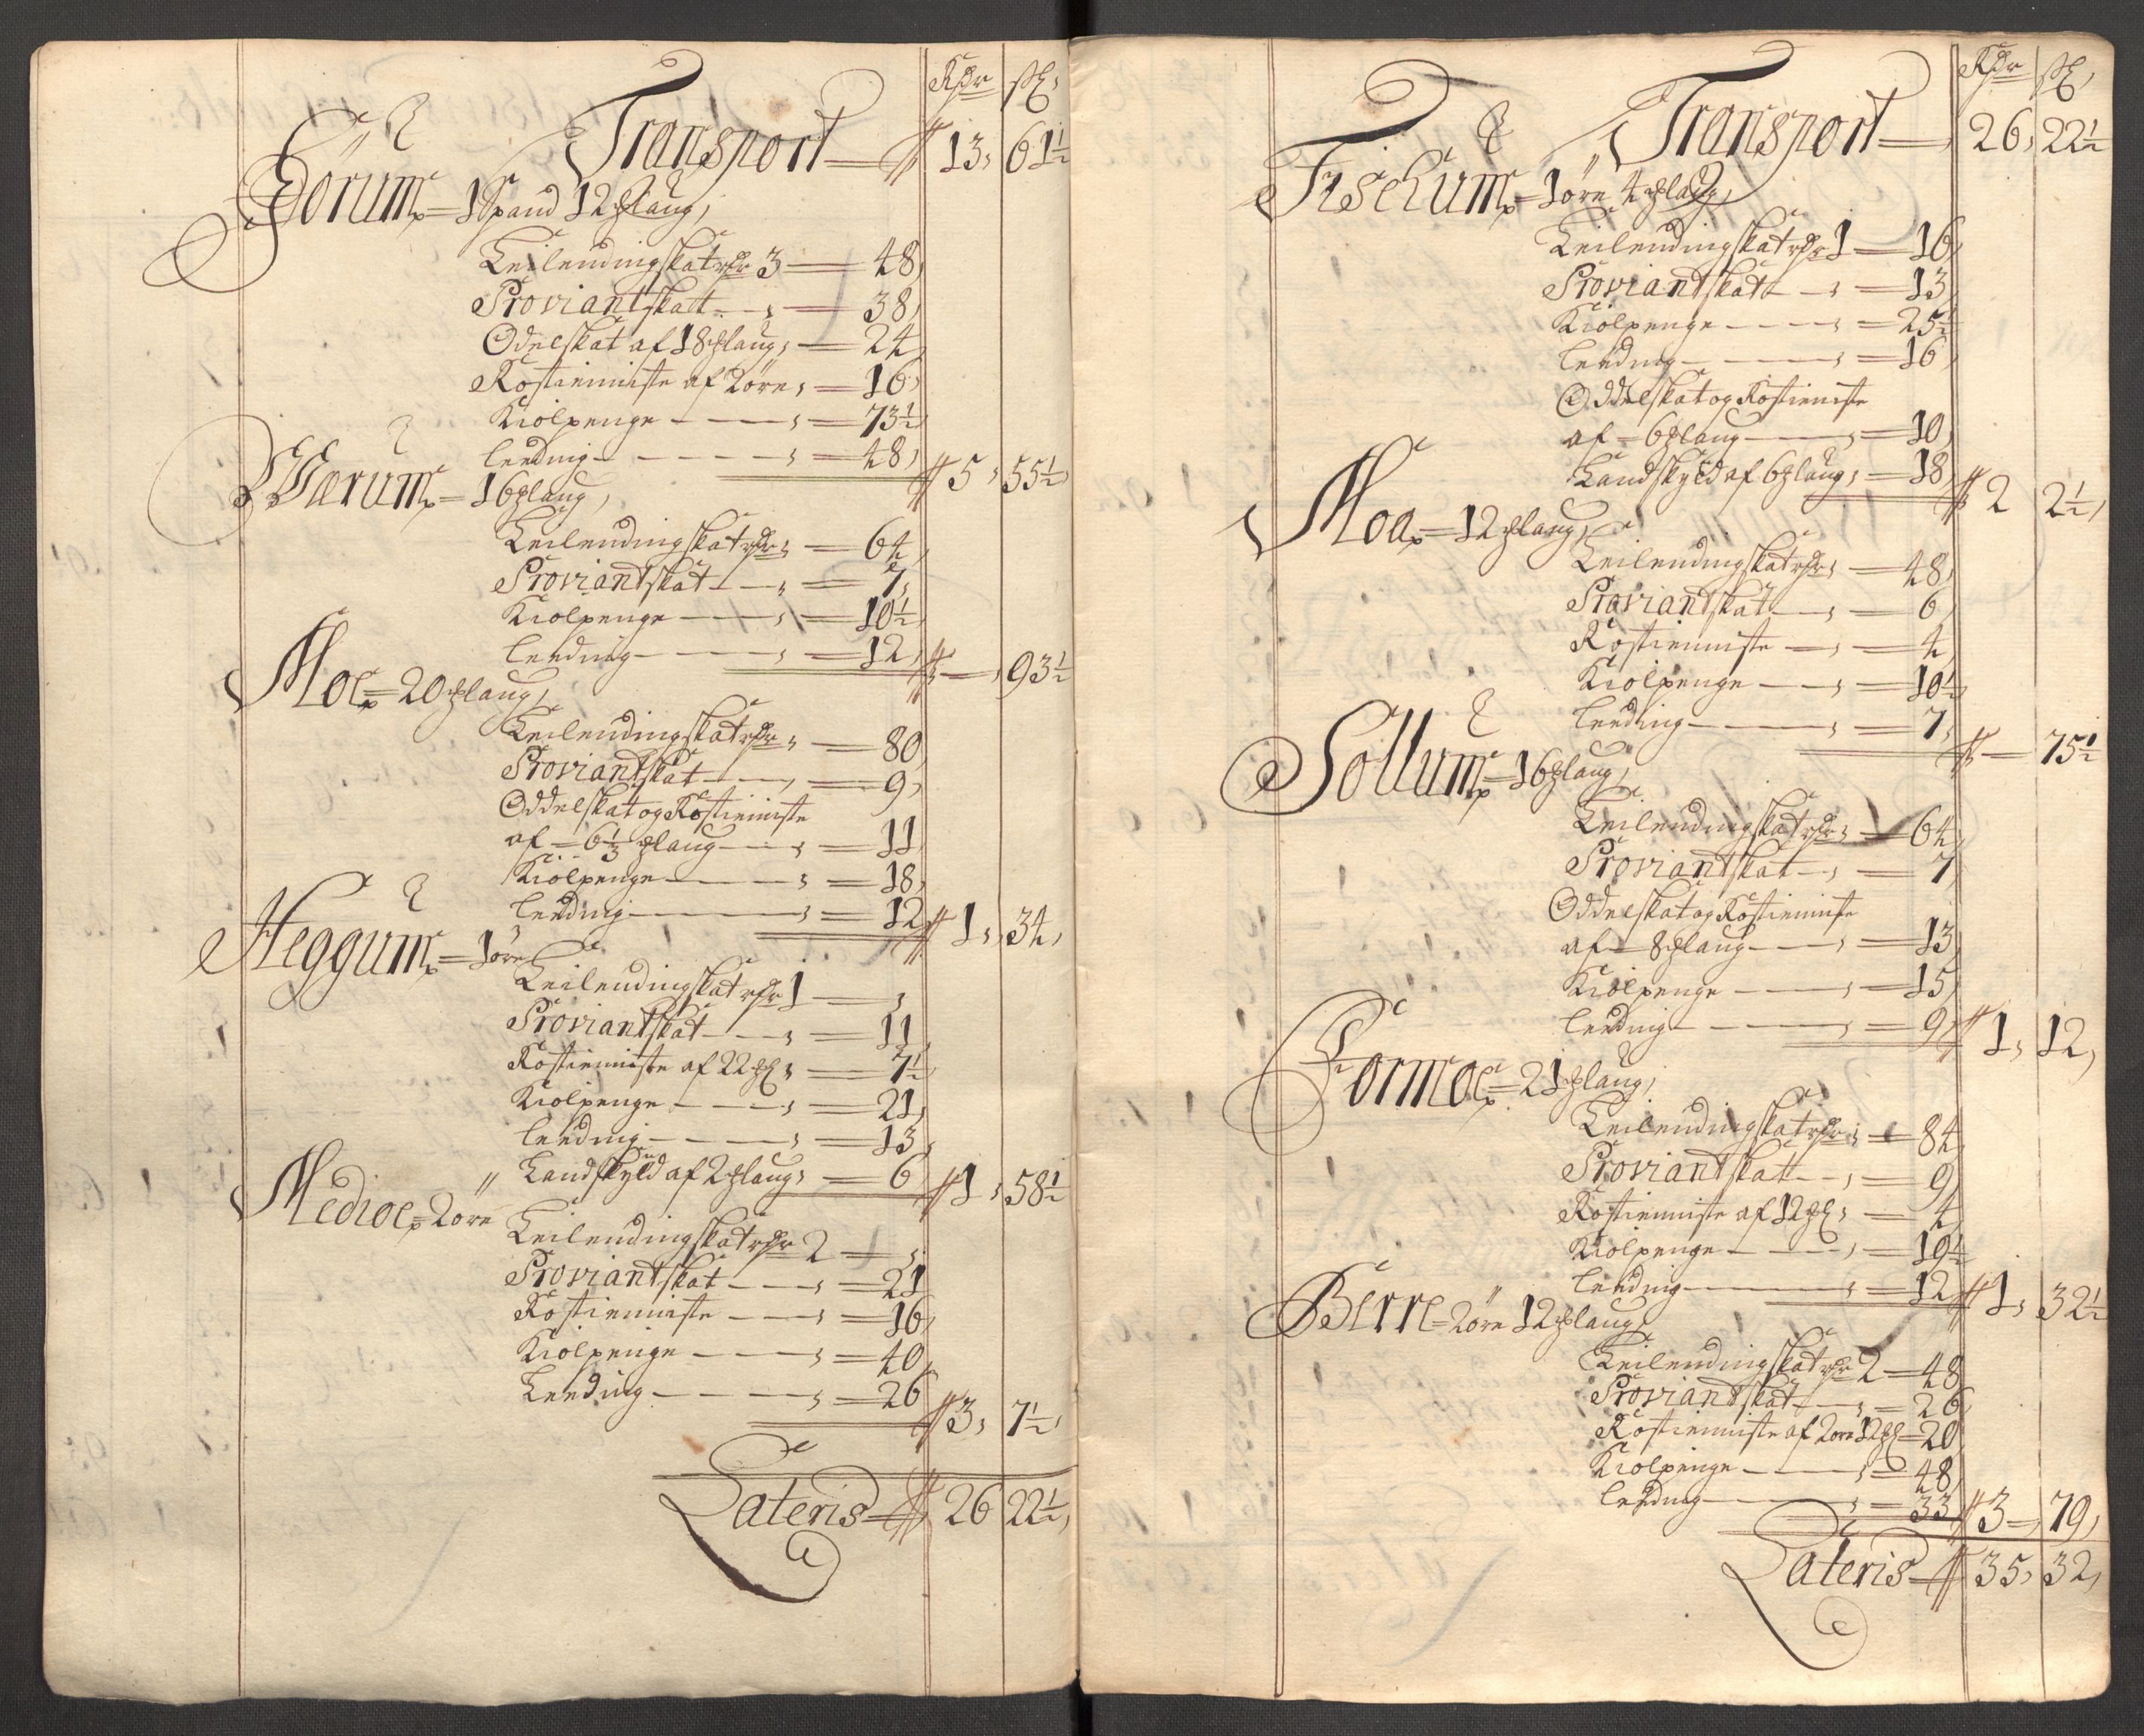 Rdr ß
Transport 13, 61½
Görum = 1 Spand 12 ℔laug,
Leilendingskat rdr 3 — 48,
Proviantskatt — 38,
Odelskat af 18 ℔laug, — 24,
Rostieniste af 2 öre, = 16,
Kiolpenge — 73½
Leeding — 48, 5, 55½
Wærum = 16 ℔laug,
Leilendingskat rdr, — 64,
Proviantskat — 7,
Kiolpenge — 10½
Leeding — 12, —, 93½
Moe = 20 ℔laug,
Leilendingskat rdr, — 80,
Proviantskat — 9,
Oddelskat og Rostieniste
af = 6⅓ ℔laug — 11,
Kiolpenge — 18,
Leeding — 12, 1, 34,
Heggum = 1 öre
Leilendingskat rdr 1 —,
Proviantskat — 11,
Rostieniste af 22 ℔l, — 7½
Kiolpenge — 21,
Leeding — 13,
Landskyld af 2 ℔laug, — 6, 1, 58½
Medioe = 2 öre
Leilendingskat rdr 2 —,
Proviantskat — 21
Rostieniste — 16,
Kiolpenge — 40,
Leeding — 26 3, 7½,
Lateris 26 22½,
Rdr ß
Transport — 26, 22½
Fischum = 1 öre 4 ℔laug,
Leilendingskat rdr 1 — 16,
Proviantskat — 13,
Kiolpenge — 25½
Leeding — 16,
Oddelskat og Rostieniste
af = 6 ℔laug — 10,
Landskyld af 6 ℔laug, = 18, 2 2½,
Moa = 12 ℔laug,
Leilendingskat rdr, — 48,
Proviantskat — 6,
Rostieniste — 4,
Kiolpenge — 10½,
Leeding — 7, — 75½
Sollum = 16 ℔laug,
Leilendingskat rdr, — 64,
Proviantskat — 7,
Oddelskat og Rostieniste
af = 8 ℔laug — 13,
Kiolpenge — 15,
Leeding — 9, 1, 12,
Formoe = 21 ℔laug,
Leilendingskat rdr, = 84,
Proviantskatt — 9,
Rostieniste af 12 ℔l, — 4,
Kiolpenge — 19½
Leeding — 12, 1, 32½
Berre = 2 öre 12 ℔laug,
Leilendingskat rdr 2 — 48,
Proviantskat — 26,
Rostieniste af 2 öre 12 ℔l = 20,
Kiolpenge — 48,
Leeding — 33, 3 —, 79,
Lateris 35, 32,